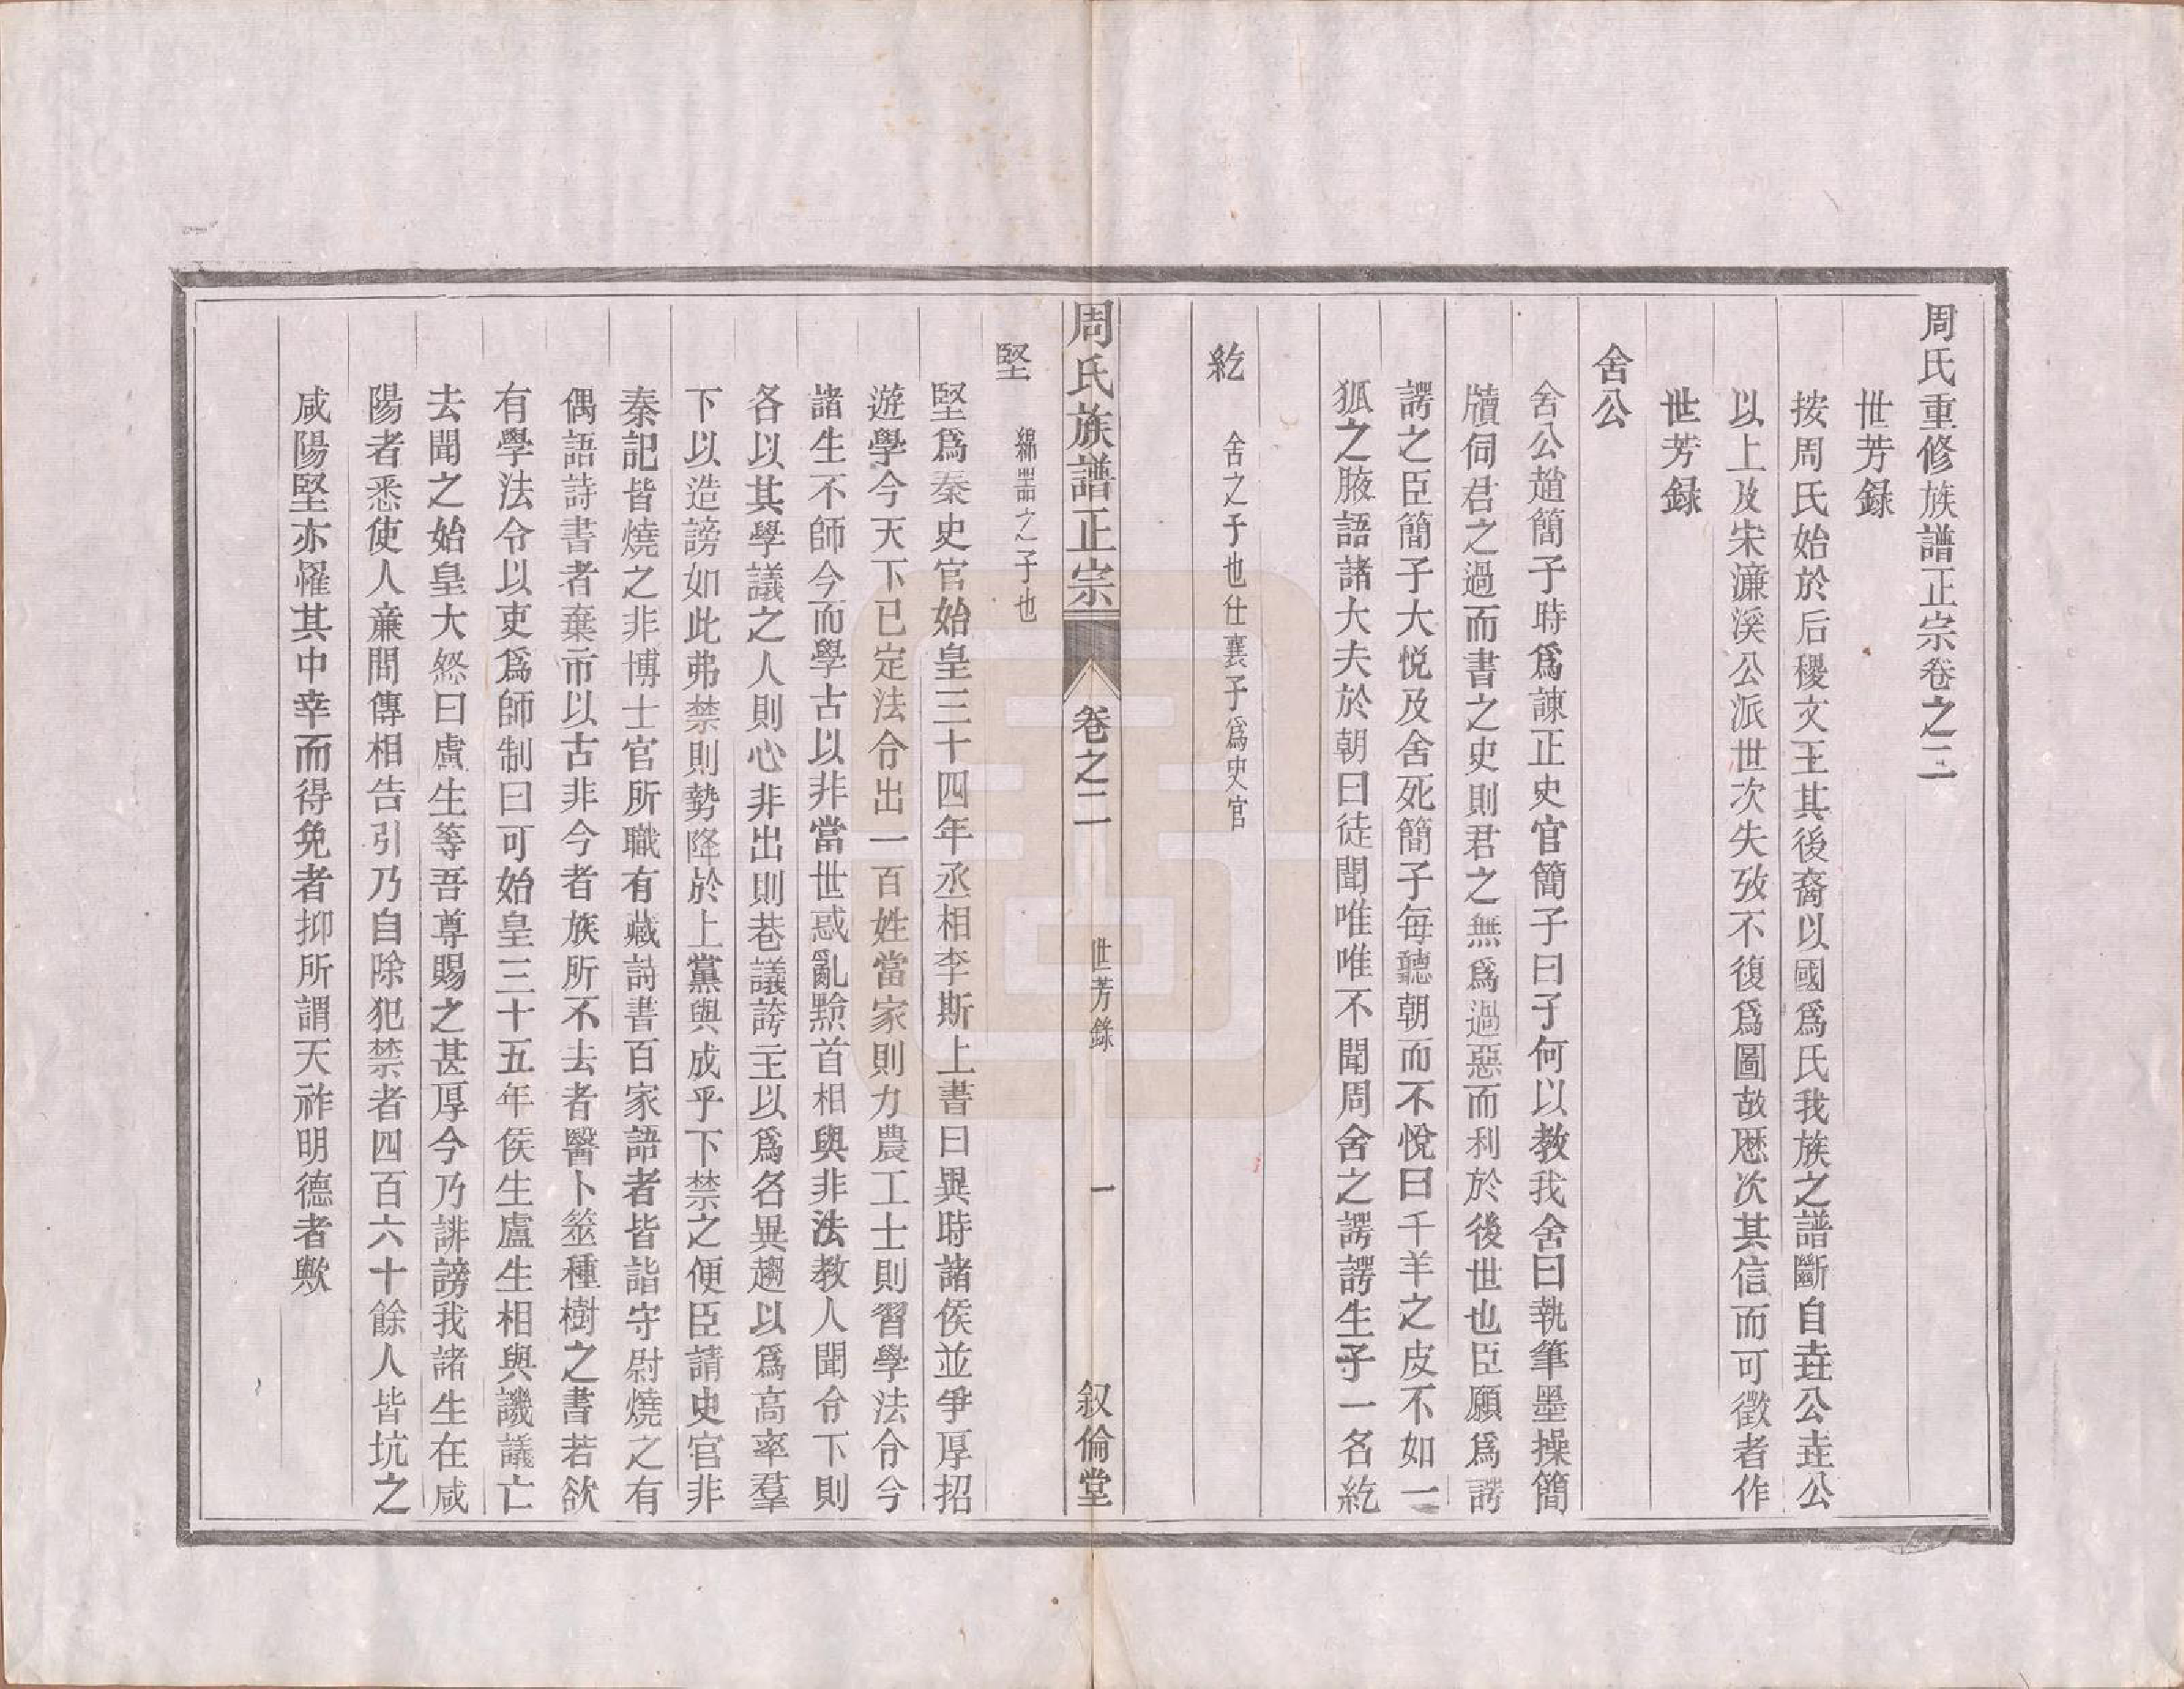 周氏重修族譜正宗卷之二
世芳録
按周氏始於后稷文王其後裔以國爲氏我族之譜斷自垚公垚公
以上及宋濂溪公派世次失攷不復爲圖故歴次其信而可徵者作
世芳録
舍公
舍公趙簡子時爲諫正史官簡子曰子何以教我舍曰執筆墨操簡
牘伺君之過而書之史則君之無爲過惡而利於後世也臣願爲諤
諤之臣簡子大悦及舍死簡子每聽朝而不悅曰千羊之皮不如一
狐之腋語諸大夫於朝曰徒聞唯唯不聞周舍之諤諤生子一名紇
紇 舍之子也仕襄子爲史官
周氏族譜正宗 卷之二 世芳錄 一 叙倫堂
堅 綿之子也
堅爲秦史官始皇三十四年丞相李斯上書曰異時諸侯並爭厚招
遊學今天下已定法令出一百姓當家則力農工士則習學法令今
諸生不師今而學古以非當世惑亂黥首相與非法教人聞令下則
各以其學議之人則心非出則巷議誇主以爲名異趨以爲高率羣
下以造謗如此弗禁則勢降於上黨與成乎下禁之便臣請史官非
秦記皆燒之非博士官所職有藏詩書百家語者皆詣守尉燒之有
偶語詩書者棄市以古非今者族所不去者醫卜筮種樹之書若欲
有學法令以吏爲師制曰可始皇三十五年侯生盧生相與譏議亡
去聞之始皇大怒曰盧生等吾尊賜之甚厚今乃誹謗我諸生在咸
陽者悉使人亷問傳相告引乃自除犯禁者四百六十餘人皆坑之
咸陽堅亦罹其中幸而得免者抑所謂天祚明德者歟